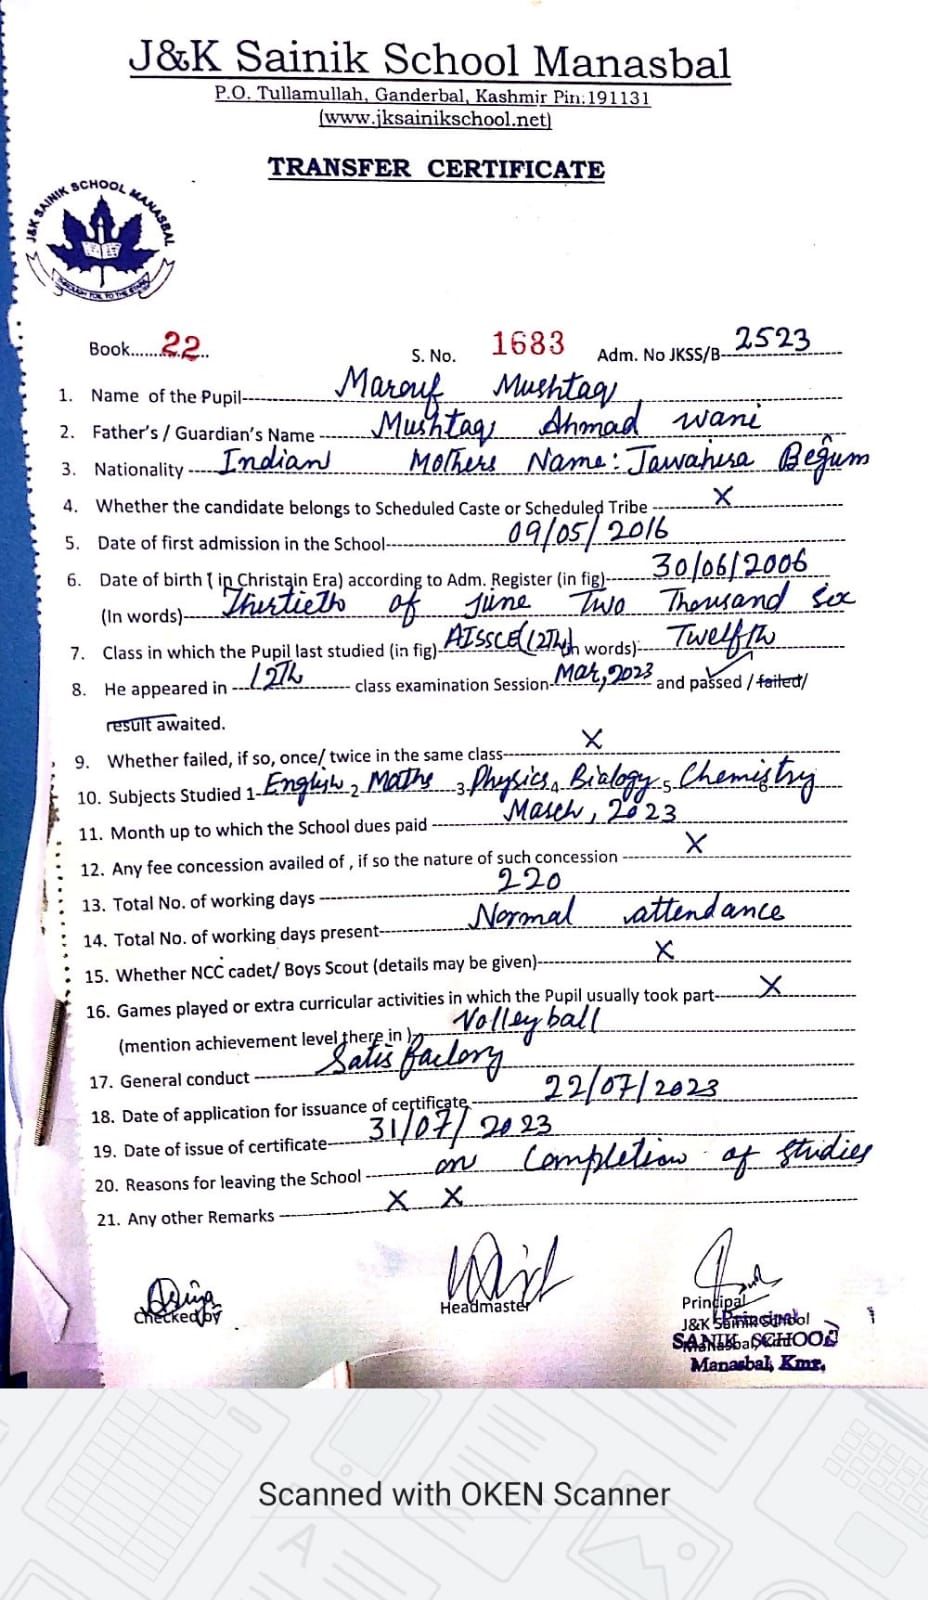 J&K Sainik School Manasbal
P.O. Tullamullah, Ganderbal, Kashmir Pin:191131
(www.jksainikschool.net)
TRANSFER CERTIFICATE
J&K SAINIK SCHOOL MANASBAL
Book........22..
S. No. 1683 Adm. No JKSS/B- 2523
1. Name of the Pupil- Marouf Mushtaq
2. Father's / Guardian's Name Mushtaq Ahmad wani
3. Nationality Indian Mothers Name: Jawahira Begum
4. Whether the candidate belongs to Scheduled Caste or Scheduled Tribe X
5. Date of first admission in the School- 09/05/2016
6. Date of birth ( in Christain Era) according to Adm. Register (in fig)- 30/06/2006
(In words)- Thirtieth of June Two Thousand Six
7. Class in which the Pupil last studied (in fig)- AISSCE(12Th) words)- Twelfth
8. He appeared in 12Th class examination Session- Mar, 2023 and passed / failed/
result awaited.
9. Whether failed, if so, once/ twice in the same class- X
10. Subjects Studied 1- English 2- Maths 3 Physics 4 Biology 5 Chemistry 6
11. Month up to which the School dues paid March, 2023
12. Any fee concession availed of , if so the nature of such concession X
13. Total No. of working days 220
14. Total No. of working days present- Normal attendance
15. Whether NCC cadet/ Boys Scout (details may be given)- X
16. Games played or extra curricular activities in which the Pupil usually took part- X
(mention achievement level there in ) Volleyball
17. General conduct Satisfactory
18. Date of application for issuance of certificate 22/07/2023
19. Date of issue of certificate- 31/07/2023
20. Reasons for leaving the School on Completion of studies
21. Any other Remarks X X
Checked by
Headmaster
Principal
J&K Sainik School
Principal
SANIK SCHOOL
Manasbal, Kmr.
Scanned with OKEN Scanner